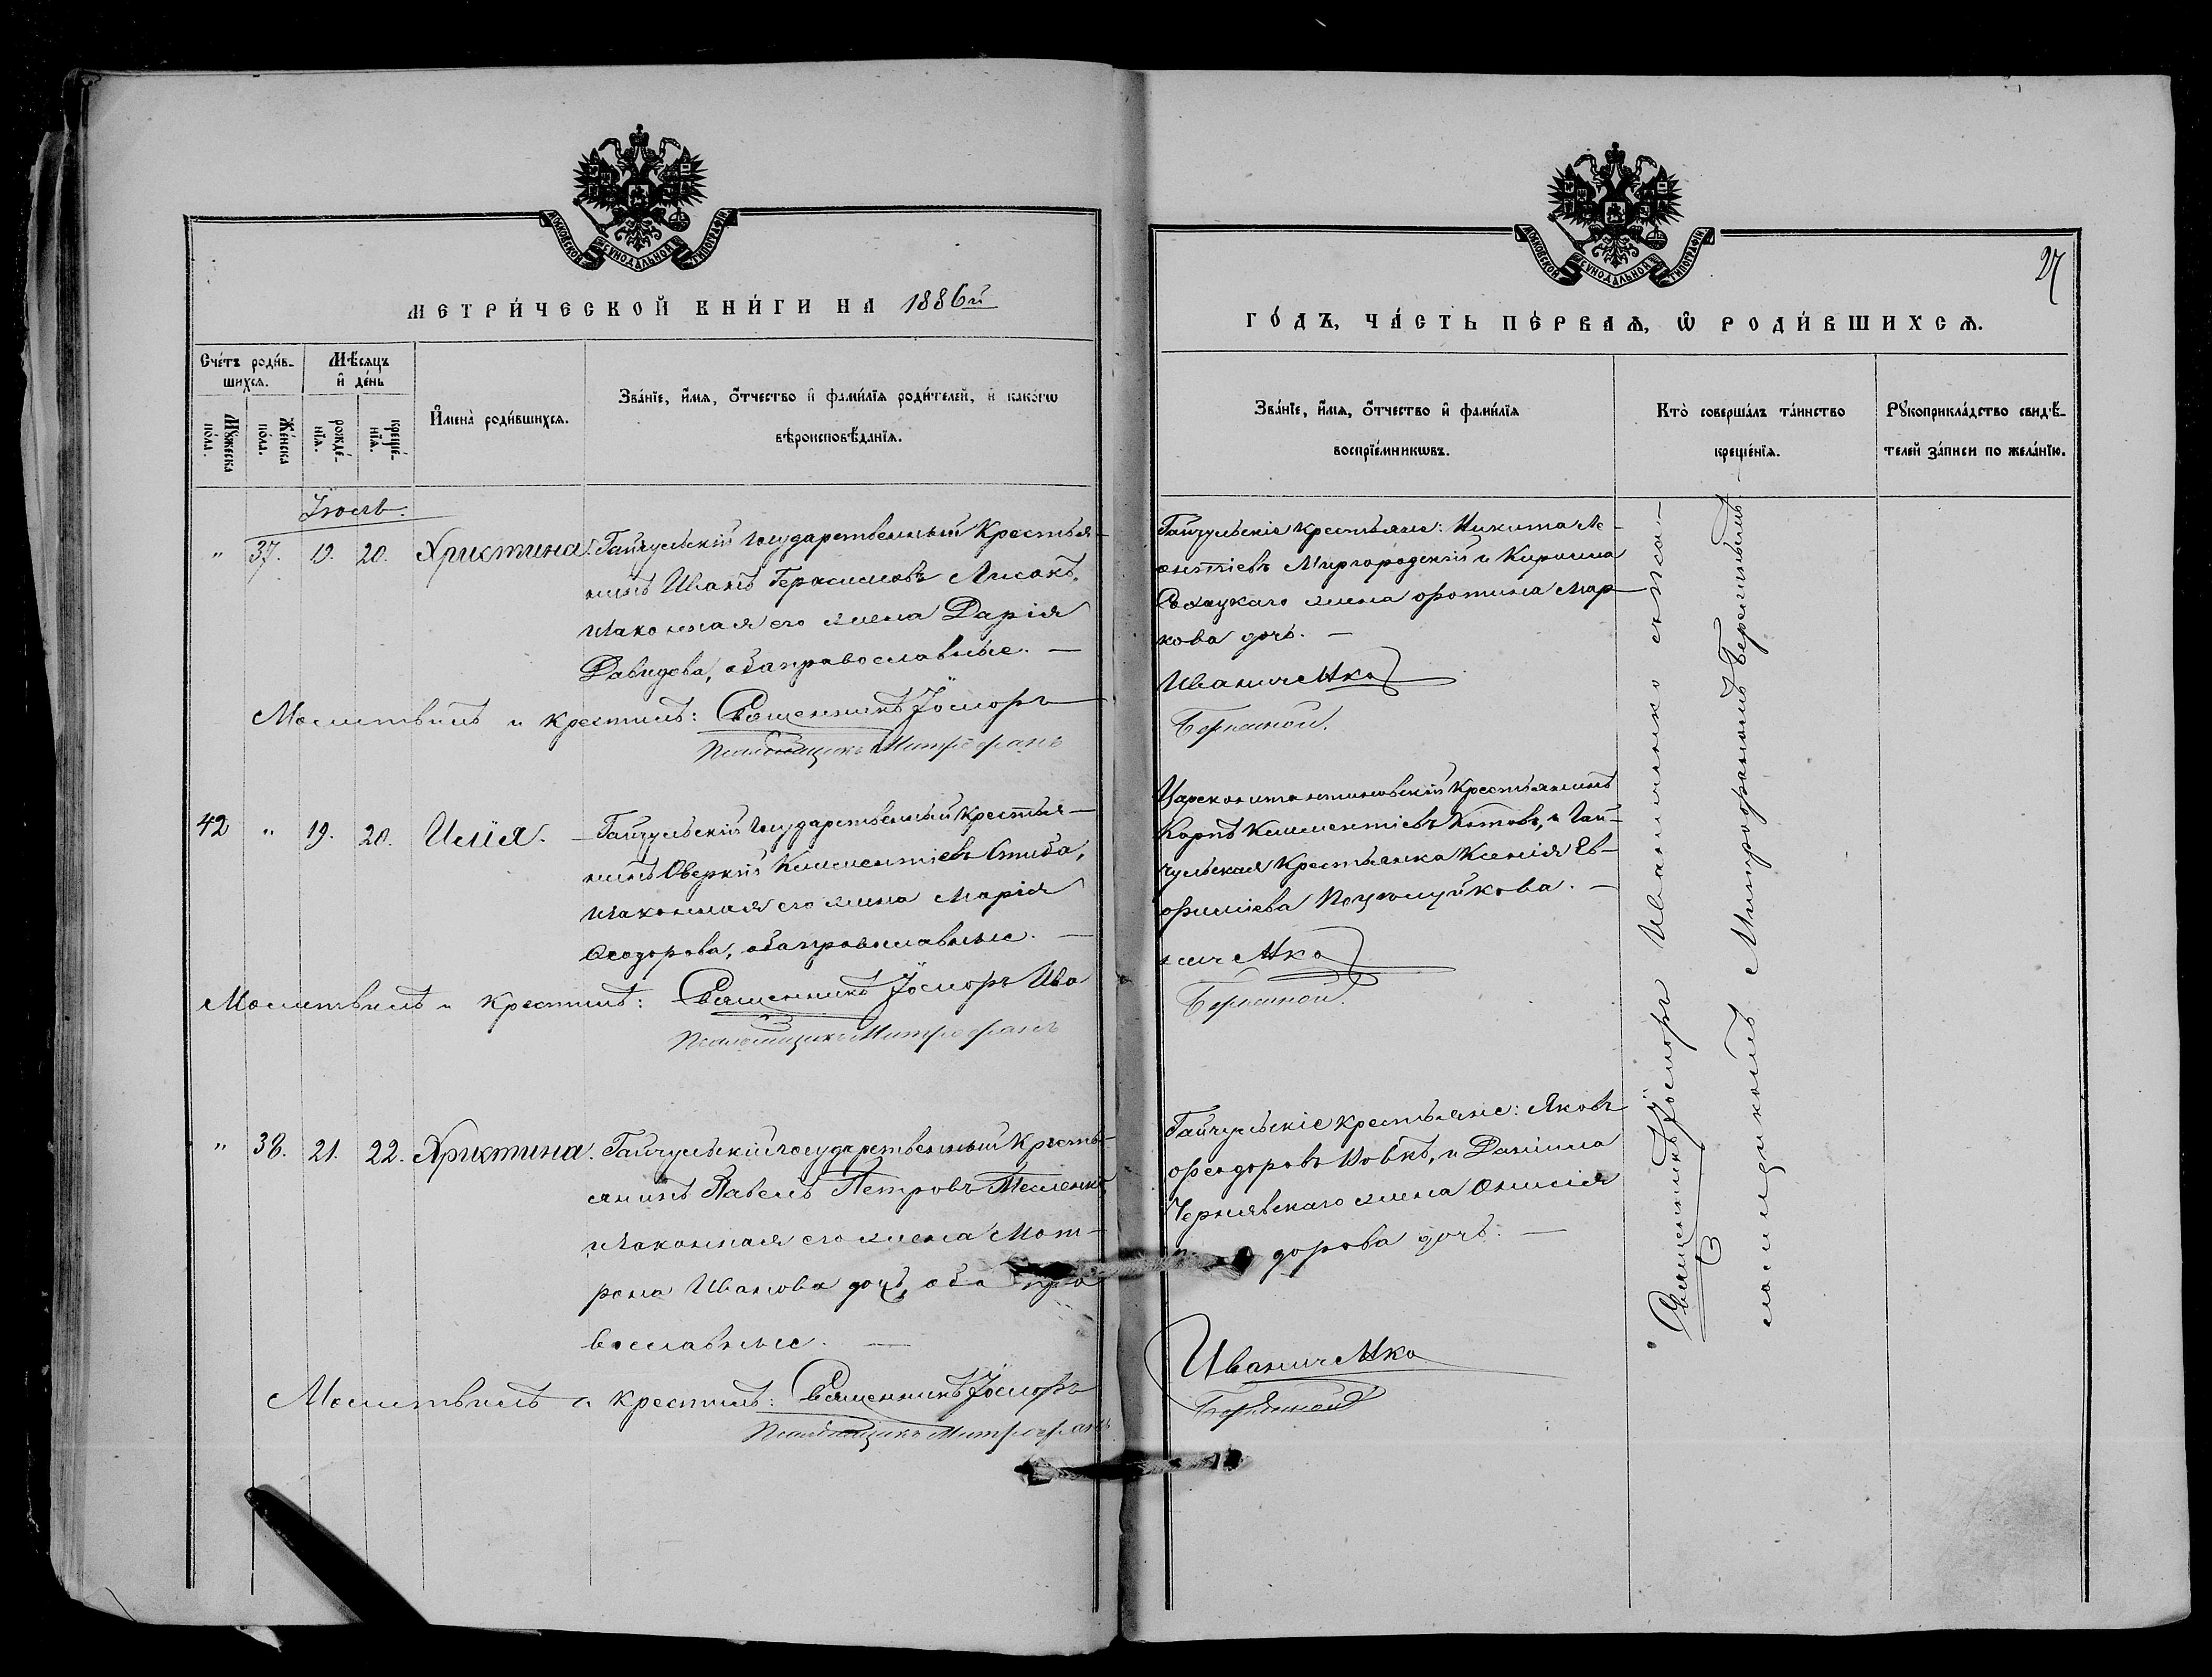 МОСКОВСКОЙ СѴНОДАЛЬНОЙ ТИПОГРАФІИ
МЕТРИ́ЧЕСКОЙ КНИ́ГИ НА 1886й
Сче́тъ роди́в-
шихся.
Мѣ́сяцъ
и҆ де́нь
Мꙋ́жеска
по́ла.
Же́нска
по́ла.
рожде́-
нїѧ.
креще́-
нїѧ.
И҆мена̀ роди́вшихся.
Зва́нїе, и҆́мя, ѻ҆́тчество и҆ фами́лїя роди́телей, и҆ како́гѡ
вѣроисповѣ́данїя.
Іюль.
" 37. 19. 20. Христина. Гайчульскій государственный крестья-
нинъ Иванъ Герасимовъ Лисакъ,
и законная его жена Дарія
Давидова, оба православные. —
Молитвилъ и крестилъ: Священникъ Іосифъ
Псаломщикъ Митрофанъ
42 " 19. 20. Илія. Гайчульскій государственный крестья-
нинъ Аверкій Климентіевъ
и законная его жена Марія
Ѳеодорова, оба православные. —
Молитвилъ и крестилъ: Священникъ Іосифъ Ива
Псаломщикъ Митрофанъ
" 38. 21. 22. Христина. Гайчульскій государственный кресть-
янинъ Павелъ Петровъ Тесленко
и законная его жена Мот-
рона Иванова дочь, оба пра
вославные. —
Молитвилъ и крестилъ: Священникъ Іосифъ
Псаломщикъ Митрофанъ
МОСКОВСКОЙ СѴНОДАЛЬНОЙ ТИПОГРАФІИ
27
ГО́ДЪ, ЧА́СТЬ ПЕ́РВАѦ, Ѡ҆ РОДИ́ВШИХСѦ.
Зва́нїе, и҆́мя, ѻ҆́тчество и҆ фами́лїя
воспрїе́мникѡвъ.
Кто̀ соверша́лъ та́инство
креще́нїя.
Рꙋкоприкла́дство свидѣ́-
телей за́писи по жела́нїю.
Гайчульскіе крестьяне: Никита Ле-
онтіевъ Миргородскій и Кирилла
жена Фотина Мар-
кова дочь. —
Иваниченко
Береżной.
Царсконстантиновскій крестьянинъ
Карпъ Климентіевъ Котовъ, и Гай-
чульская крестьянка Ксенія Ев-
фиміева —
ниченко
Гайчульскіе крестьяне: Яковъ
Феодоровъ Вовкъ, и Даніила
Чернявскаго жена Анисія
дорова дочь. —
Иваниченко
Священникъ Іосифъ Иваниченко съ Пса-
ломщикомъ Митрофаномъ